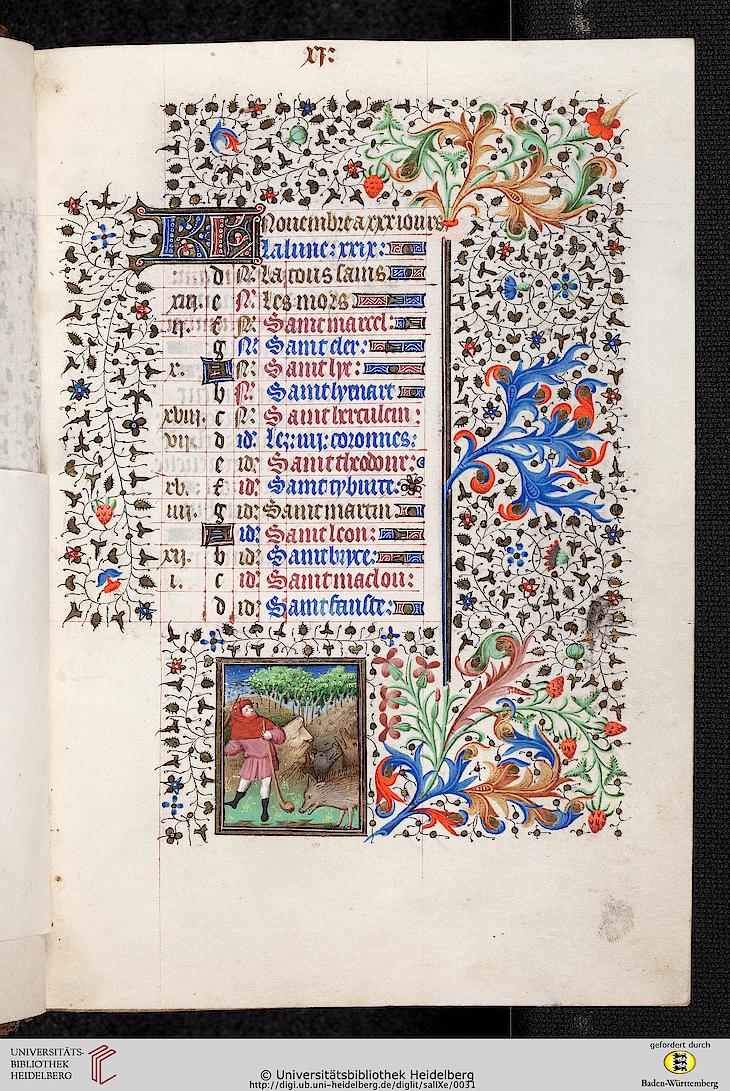 xi:
KL Nouembre a xxx iours
La lune: xxix:
d N: La tous sains
xiii. e N: Les mors
ii. f N: Saint marcel:
g N: Saint cler:
x. A N: Saint lye:
b N: Saint lyenart
xviii. c N: Saint herculein:
vii. d id: Lez: iiii: coronnes:
e id: Saint theodore:
xv. f id: Saint tyburce:
iiii. g id: Saint martin
A id: Saint leon:
xii. b id: Saint brixe:
i. c id: Saint maclou:
d id: Saint fauste:
UNIVERSITÄTS-
BIBLIOTHEK
HEIDELBERG
© Universitätsbibliothek Heidelberg
http://digi.ub.uni-heidelberg.de/diglit/salIXe/0031
gefördert durch
Baden-Württemberg